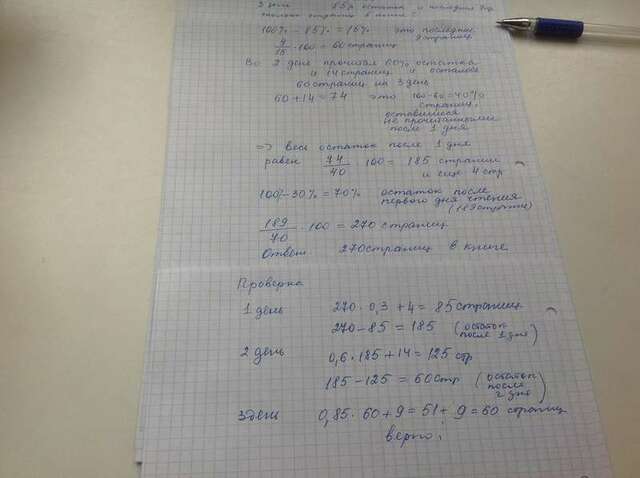 3 день 85% остатка и последние 9 стр
сколько страниц в книге?
100% - 85% = 15% это последние
9 страниц
9/15 · 100 = 60 страниц
Во 2 день прочитал 60% остатка
и 14 страниц и осталось
60 страниц на 3 день
60 + 14 = 74 это 100-60=40%
страниц,
оставшиеся
не прочитанными
после 1 дня
=> весь остаток после 1 дня
равен 74/40 · 100 = 185 страниц
и еще 4 стр
100% - 30% = 70% остаток после
первого дня чтения
(189 страниц)
189/70 · 100 = 270 страниц
Ответ 270 страниц в книге
Проверка
1 день 270 · 0,3 + 4 = 85 страниц
270 - 85 = 185 (остаток
после 1 дня)
2 день 0,6 · 185 + 14 = 125 стр
185 - 125 = 60 стр (остаток
после
2 дня)
3 день 0,85 · 60 + 9 = 51 + 9 = 60 страниц
верно!